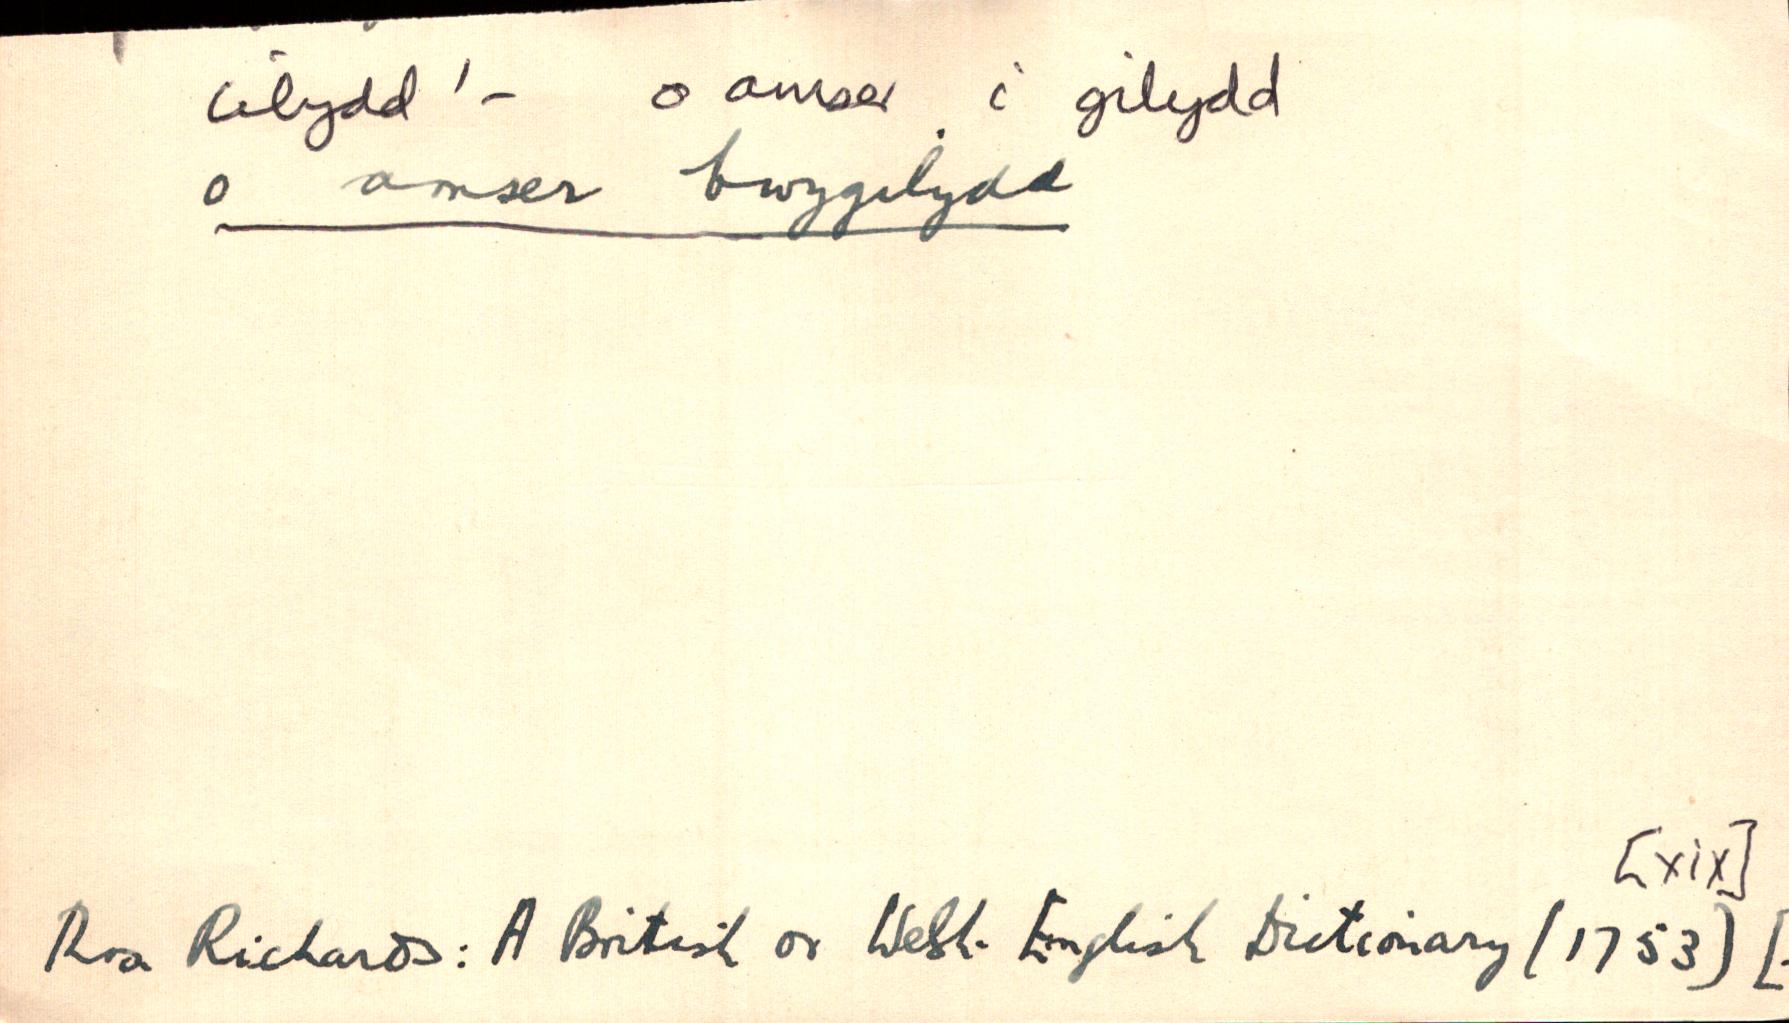 cilydd¹ - o amser i gilydd
o amser bwygilydd
[xix]
Richards: A British or Welsh-English Dictionary (1753) [